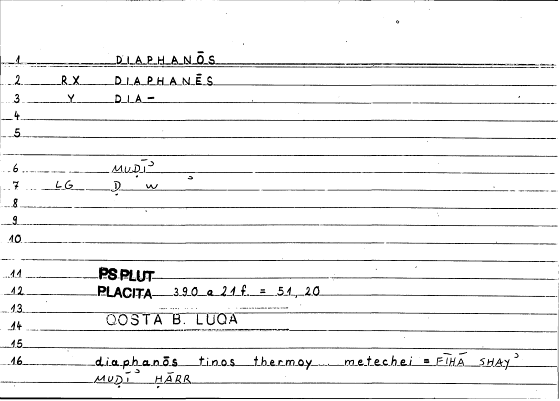 1 DIAPHANŌS
2 RX DIAPHANĒS
3 Y DIA-
4
5
6 MUḌĪʾ
7 LG Ḍ W ʾ
8
9
10
11 PS PLUT
12 PLACITA 390 a 21 f. = 51, 20
13
14 QOSTA B. LUQA
15
16 diaphanōs tinos thermoy metechei = FĪHĀ SHAYʾ
MUḌĪʾ ḤĀRR